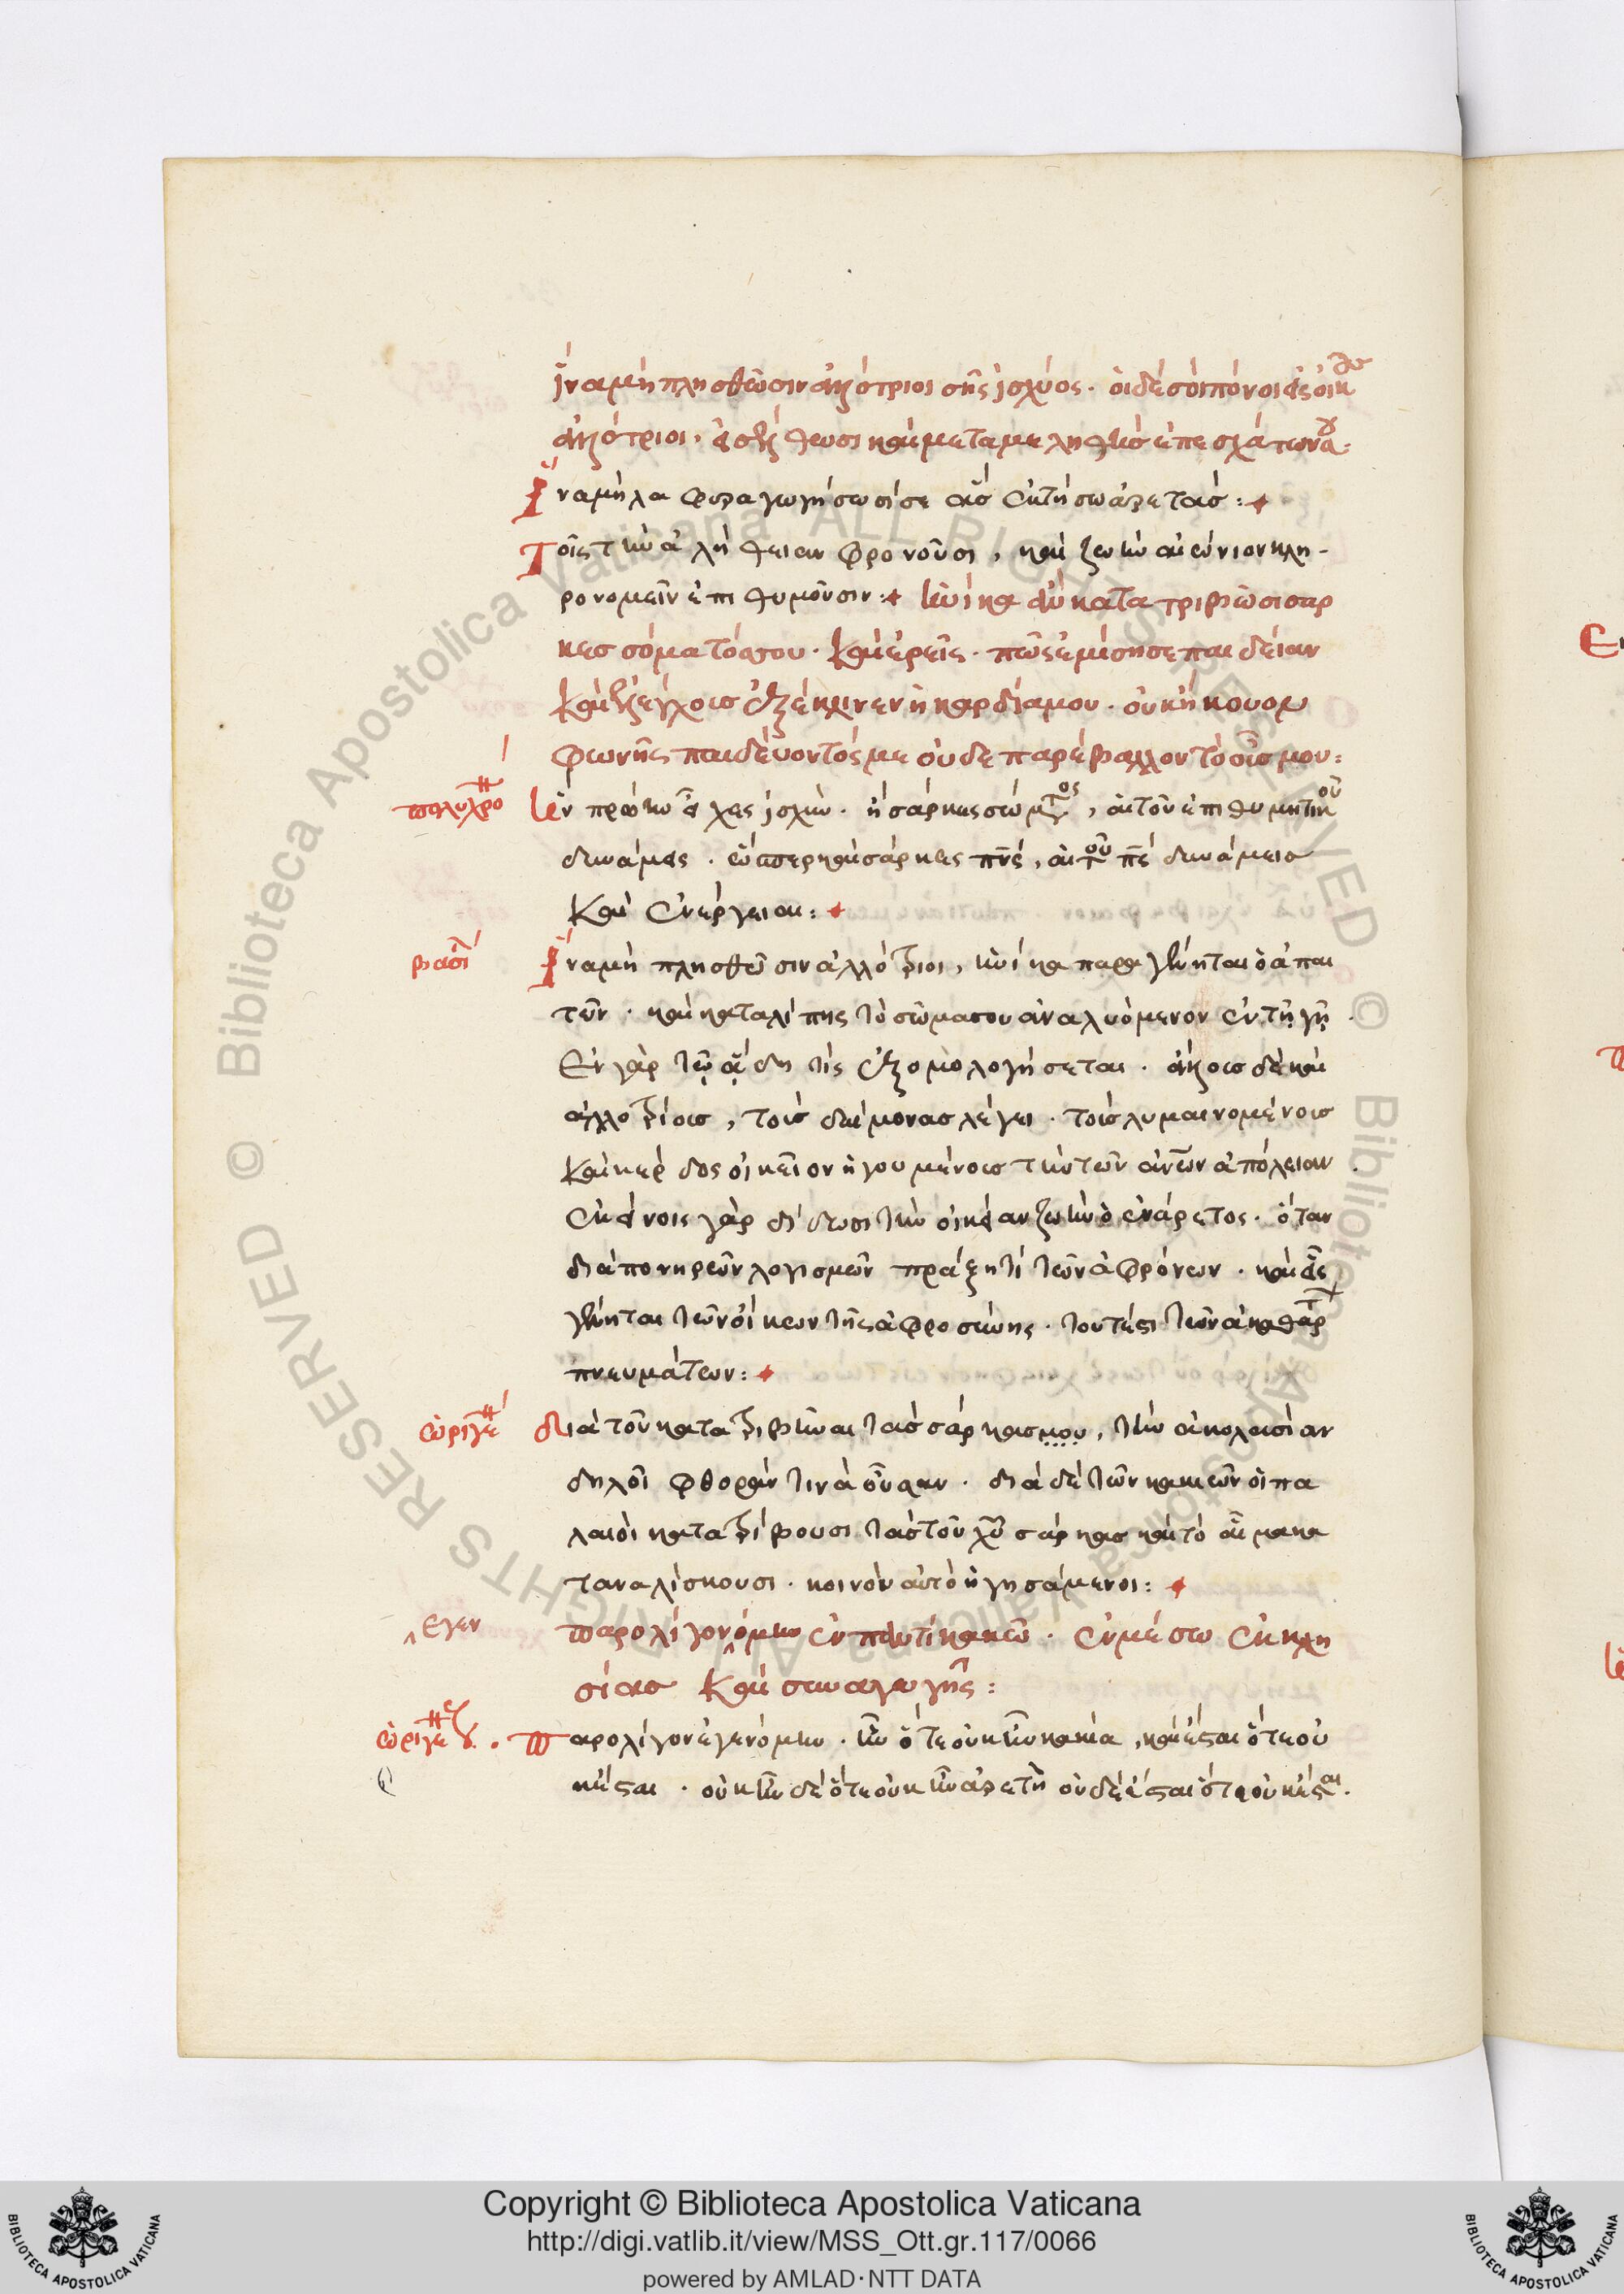 ἵνα μὴ πλησθῶσιν ἀλλότριοι σῆς ἰσχύος. οἱ δὲ σοὶ πόνοι εἰς οἴκους
ἀλλοτρίοι. εἰσέλθωσι καὶ μεταμεληθήσει ἐπ' ἐσχάτων σου:
Ἵνα μὴ λαφυραγωγήσωσί σε ἃς ἐκτήσω ἀρετάς:
Τοῖς τὴν ἀλήθειαν φρονοῦσι, καὶ ζωὴν αἰώνιον κλη-
ρονομεῖν ἐπιθυμοῦσιν: ἡνίκα ἂν κατατριβῶσι σάρ
κες σόματός σου. καὶ ἐρεῖς. πῶς ἐμίσησε παιδείαν
καὶ ἐλέγχοις ἐξέκλινεν ἡ καρδία μου. οὐκ ἤκουον
φωνῆς παιδεύοντός με οὐδὲ παρέβαλλον τὸ οὖς μου:
πολυχρο
Ἣν πρώην εἶχες ἰσχὺν. ἢ σάρκες σώματος, αἱ τοῦ ἐπιθυμητικοῦ
δυνάμεις. ὥσπερ καὶ σάρκες πνς, αἱ τοῦ πνς δυνάμεις
καὶ ἐνέργειαι:
βασιλ
Ἵνα μὴ πλησθῶσιν ἀλλότριοι, ἡνίκα παραγένηται ὁ ἀπαι
τῶν. καὶ καταλίπης τὸ σῶμα σου ἀναλυόμενον ἐν τῇ γῇ.
Ἐν γὰρ τῷ ᾅδη τίς ἐξομολογήσεται. ἄλλοις δὲ καὶ
ἀλλοτρίοις, τοὺς δαίμονας λέγει. τοῖς λυμαινομένοις
καὶ κέρδος οἰκεῖον ἡγουμένοις τὴν τῶν ἀνων ἀπόλειαν.
ἐκείνοις γὰρ δίδωσι τὴν οἰκείαν ζωὴν ὁ ἐνάρετος. ὅταν
διὰ πονηρῶν λογισμῶν πράξη τί τῶν ἀφρόνων. καὶ εἷς
γένηται τῶν οἴκων τῆς ἀφροσύνης. τουτέστι τῶν ἀκαθάρτ
πνευμάτων:
ὠριγέ
Διὰ τοῦ κατατριβῆναι τὰς σάρκας μου, τὴν ἀκολασίαν
δηλοῖ φθορὰν τινὰ οὖσαν. διὰ δὲ τῶν κακῶν οἱ πα
λαιοὶ κατατρίβουσι τὰς τοῦ χυ σάρκας καὶ τὸ αἷμα κα
ταναλίσκουσι. κοινὸν αὐτὸ ἡγησάμενοι:
εγεν
παρολίγον όμην ἐν παντὶ κακῶ. ἐν μέσω ἐκκλη
σίας καὶ συναγωγῆς:
ὠριγέ
Παρολίγον ἐγενόμην. ἦν ὅτε οὐκ ἦν κακία, καὶ ἔσται ὅτε οὐ
κ ἔσται. οὐκ ἦν δὲ ὅτε οὐκ ἦν ἀρετὴ οὐδὲ ἔσται ὅτε οὐκ ἔσται.
Copyright © Biblioteca Apostolica Vaticana
http://digi.vatlib.it/view/MSS_Ott.gr.117/0066
powered by AMLAD·NTT DATA